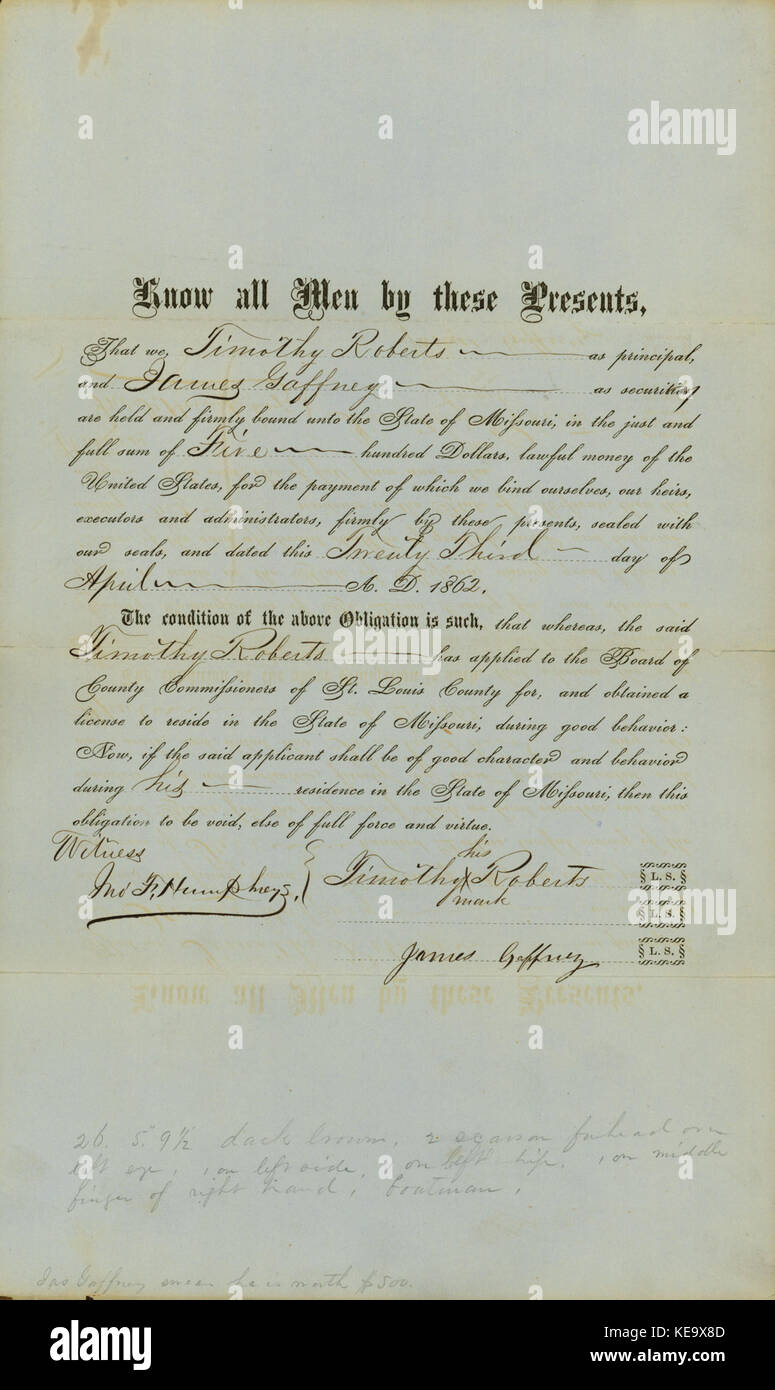 Know all Men by these Presents,
That we, Timothy Roberts as principal,
and James Gaffney as security
are held and firmly bound unto the State of Missouri, in the just and
full sum of Five hundred Dollars, lawful money of the
United States, for the payment of which we bind ourselves, our heirs,
executors and administrators, firmly by these presents, sealed with
our seals, and dated this Twenty Third day of
April A. D. 1862.
The condition of the above Obligation is such, that whereas, the said
Timothy Roberts has applied to the Board of
County Commissioners of St. Louis County for, and obtained a
license to reside in the State of Missouri, during good behavior:
Now, if the said applicant shall be of good character and behavior
during his residence in the State of Missouri, then this
obligation to be void, else of full force and virtue.
Witness
his
Jno F, Humphreys, Timothy X Roberts L. S.
mark
L. S.
James Gaffney L. S.
26. 5" 9½ dark brown, 2 scars on forhead over
left eye, 1 on left side, on left hip, 1 on middle
finger of right hand, boatman,
Jas Gaffney swears he is worth $500.
alamy stock photo
alamy
a
KE9X8D
www.alamy.com